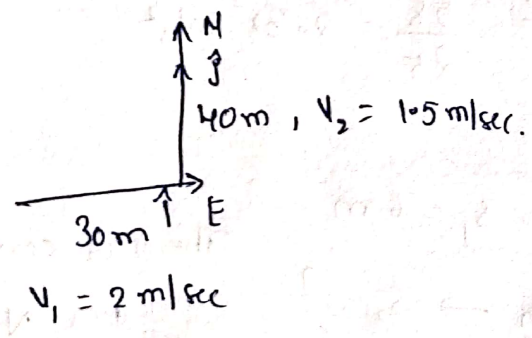 N
ĵ
40m, V₂ = 1.5 m/sec.
30m î E
V₁ = 2 m/sec